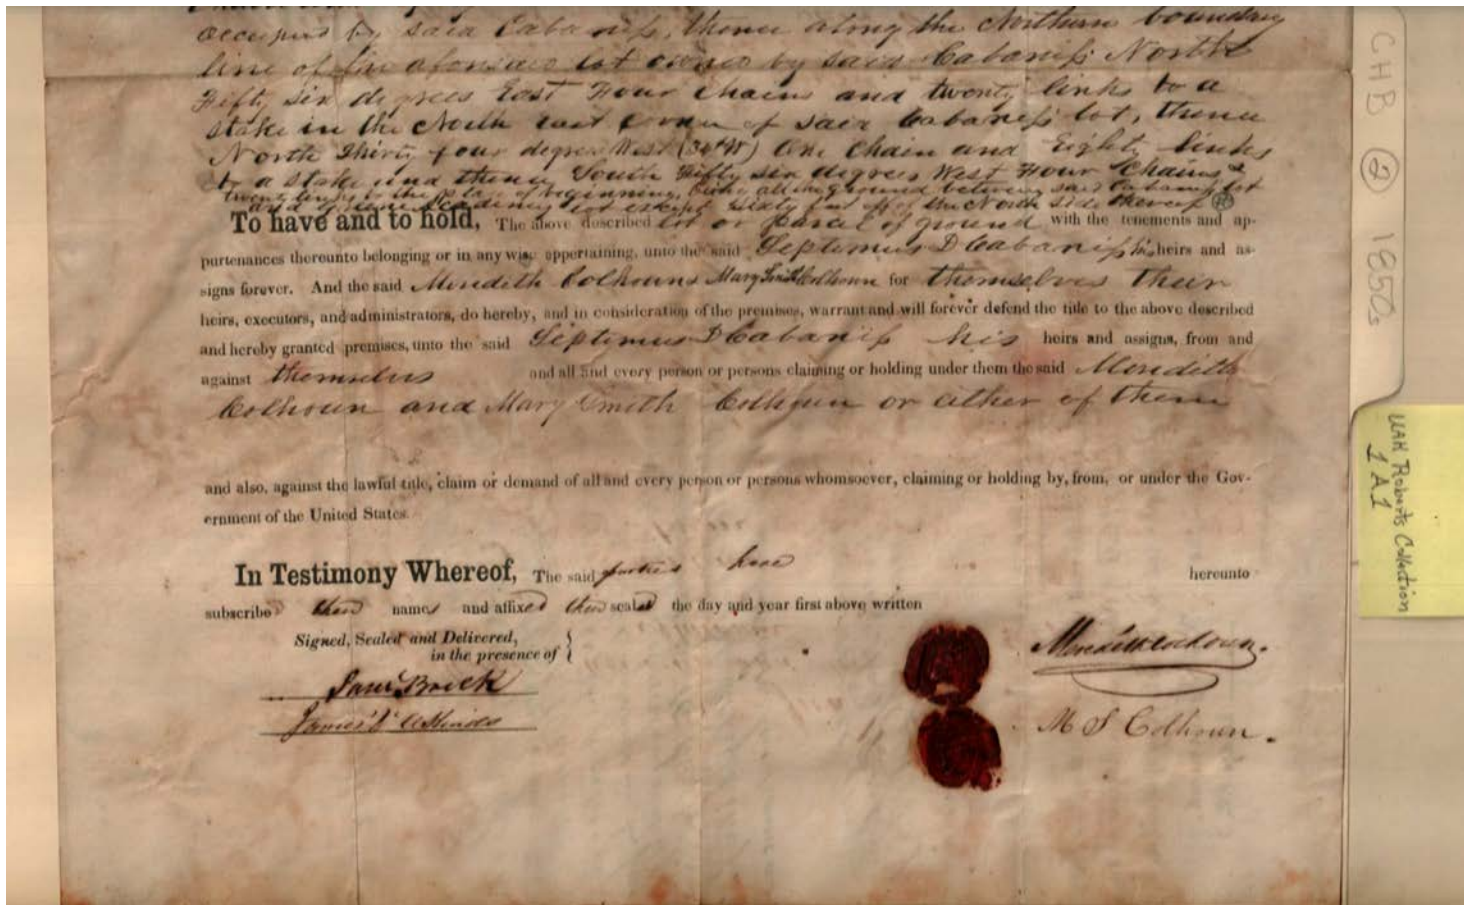 occupied by said Cabaniss, thence along the Northern boundary
line of the aforesaid lot owned by said Cabaniss North
Fifty six degrees East Four Chains and twenty links to a
stake in the North east corner of said Cabaniss lot, thence
North Thirty four degrees West (34°W) One Chain and Eighty links
to a stake and thence South Fifty six degrees West Four Chains &
twenty links to the place of beginning, being all the ground between said Cabaniss lot
and Academy lot except Sixty feet off of the North side thereof
To have and to hold, The above described lot or parcel of ground with the tenements and ap-
purtenances thereunto belonging or in any wise appertaining, unto the said Septimus D Cabaniss his heirs and as-
signs forever. And the said Meredith Colhoun & Mary Smith Colhoun for themselves their
heirs, executors, and administrators, do hereby, and in consideration of the premises, warrant and will forever defend the title to the above described
and hereby granted premises, unto the said Septimus D Cabaniss his heirs and assigns, from and
against themselves and all and every person or persons claiming or holding under them the said Meredith
Colhoun and Mary Smith Colhoun or either of them
and also, against the lawful title, claim or demand of all and every person or persons whomsoever, claiming or holding by, from, or under the Gov-
ernment of the United States.
In Testimony Whereof, The said parties have hereunto
subscribed their names and affixed their seals the day and year first above written
Signed, Sealed and Delivered,
in the presence of
Saml Breck
Meredith Colhoun.
M S Colhoun.
CHB ② 1850s
UAH Roberts Collection
1A1